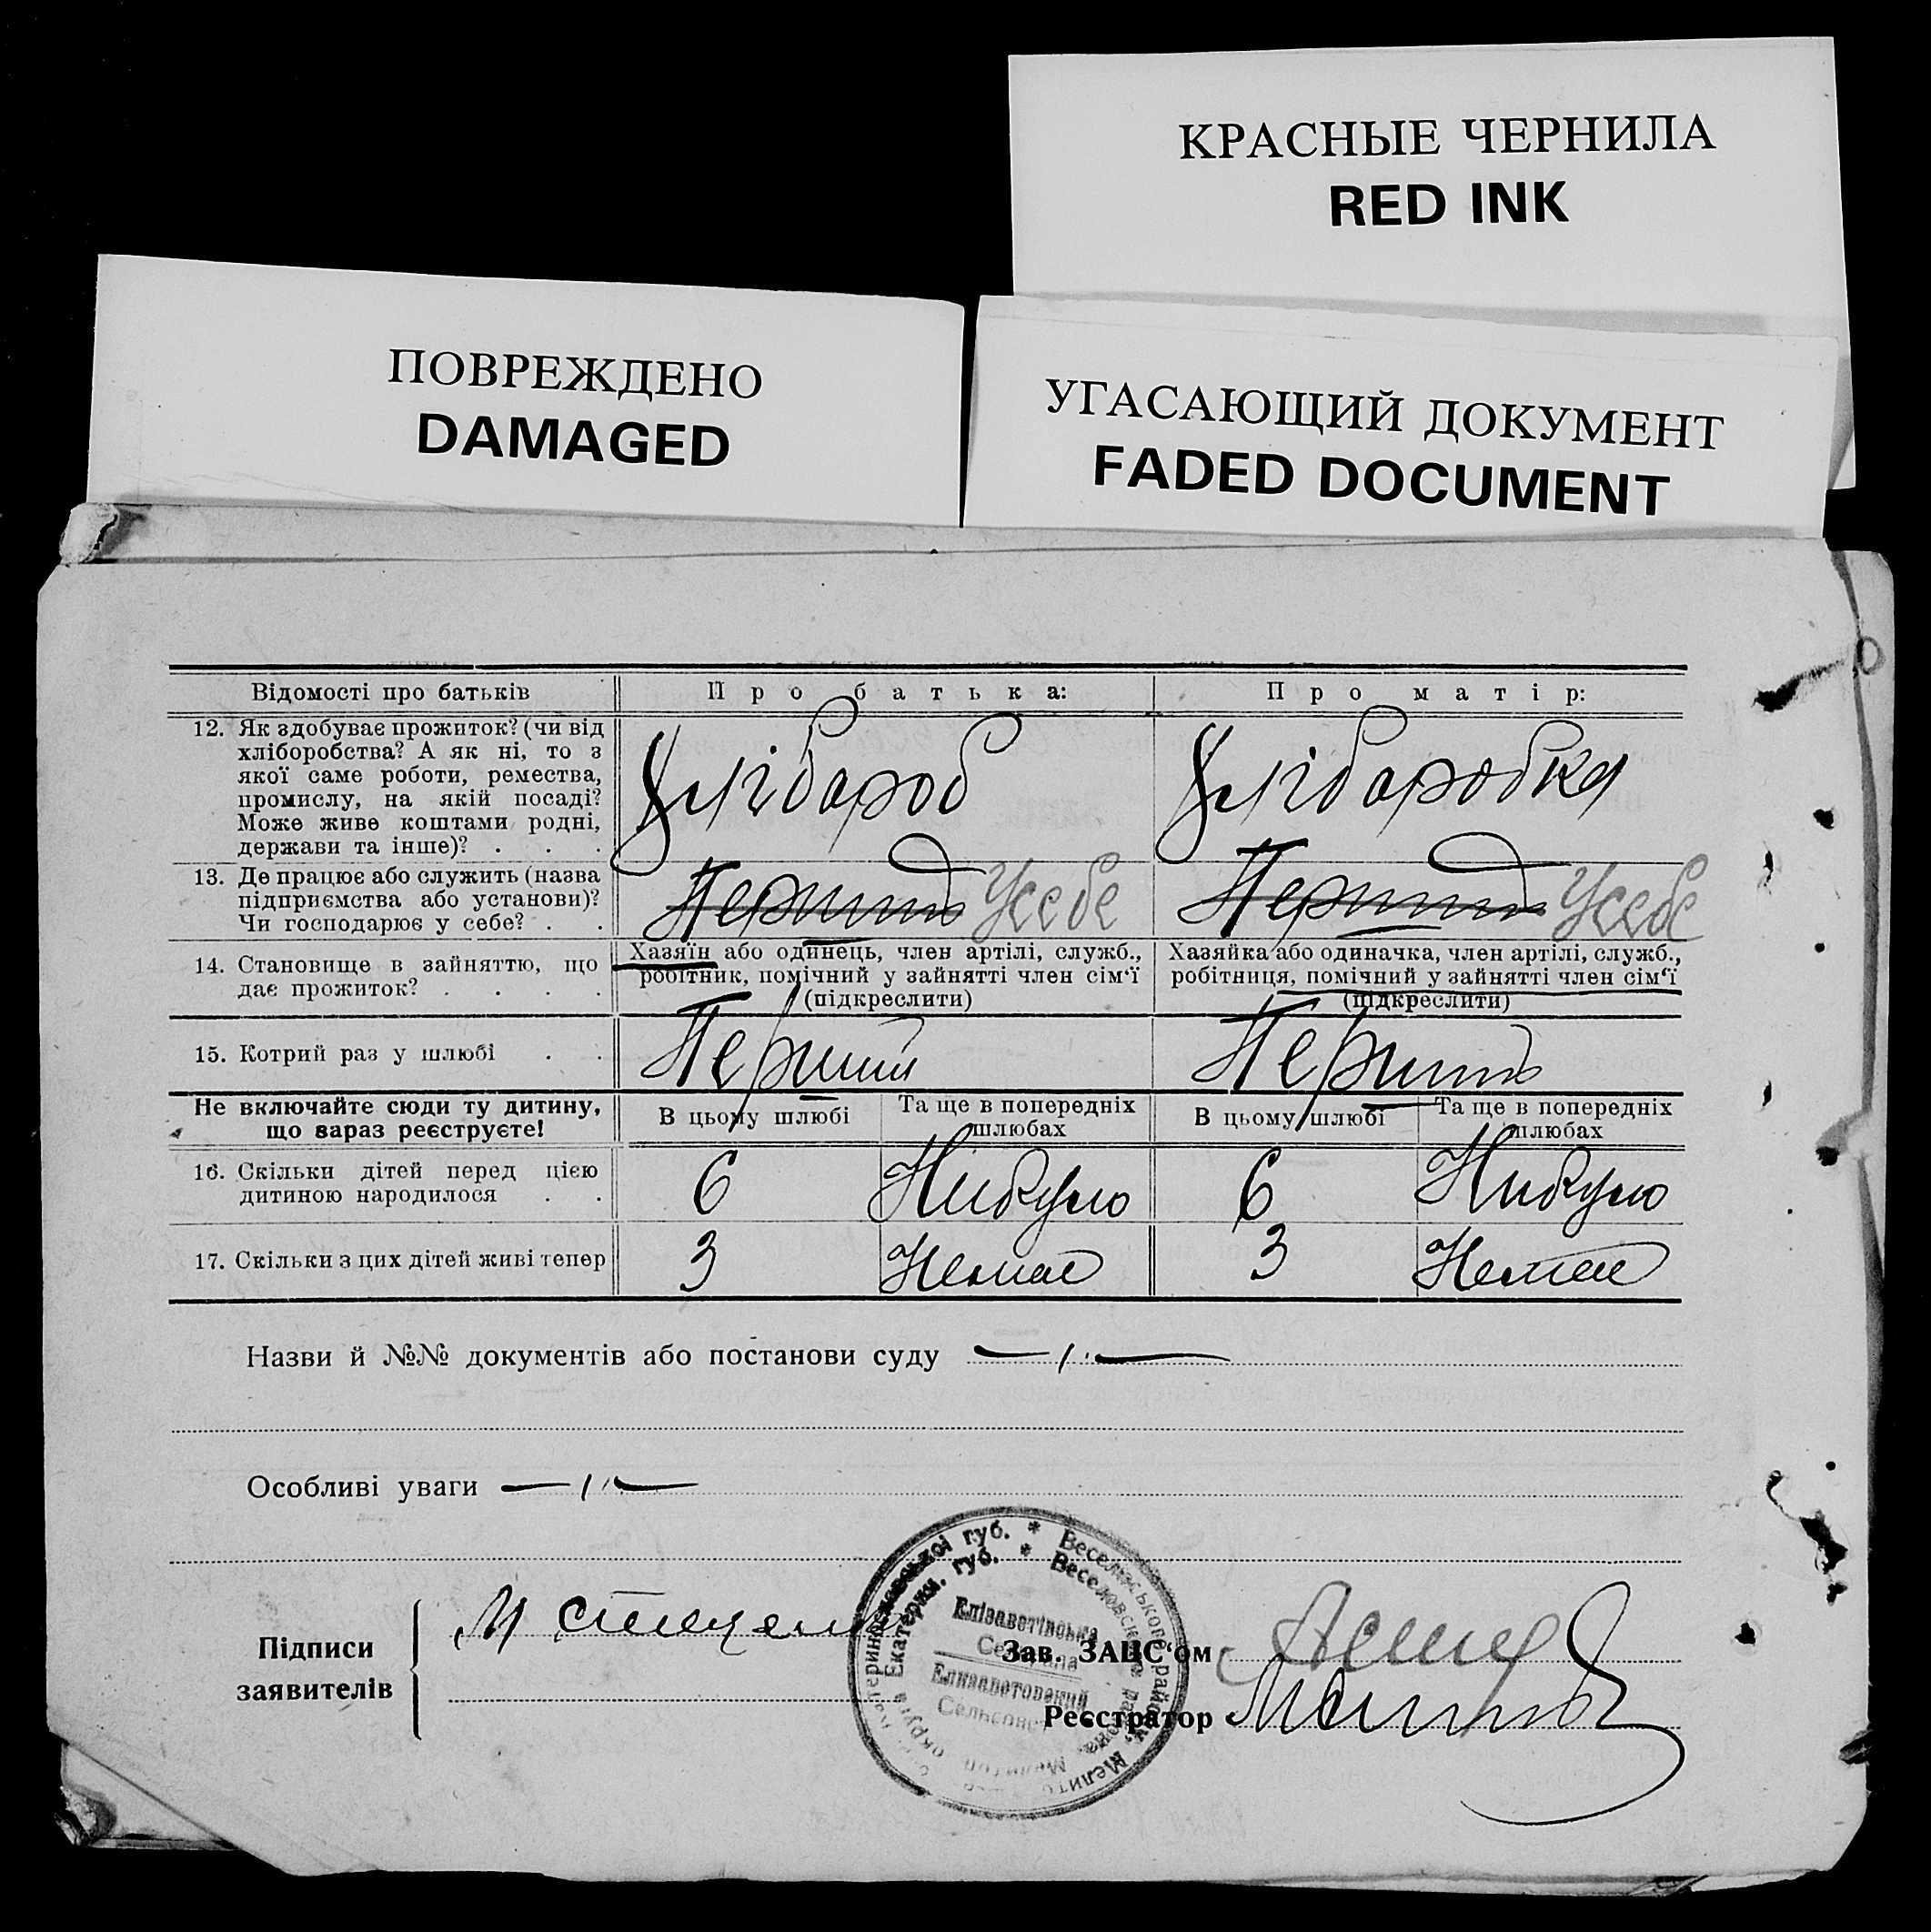 КРАСНЫЕ ЧЕРНИЛА
RED INK
ПОВРЕЖДЕНО
DAMAGED
УГАСАЮЩИЙ ДОКУМЕНТ
FADED DOCUMENT
Відомості про батьків
Про батька:
Про матір:
12. Як здобуває прожиток? (чи від
хліборобства? А як ні, то з
якої саме роботи, ремества,
промислу, на якій посаді?
Може живе коштами родні,
держави та інше)? . . .
Хлібароб
Хлібаробка
13. Де працює або служить (назва
підприємства або установи)?
Чи господарює у себе? . .
Усебе
Усебе
14. Становище в зайняттю, що
дає прожиток? . . . .
Хазяїн або одинець, член артілі, служб.,
робітник, помічний у зайнятті член сім‘ї
(підкреслити)
Хазяйка або одиначка, член артілі, служб.,
робітниця, помічний у зайнятті член сім‘ї
(підкреслити)
15. Котрий раз у шлюбі . .
Перший
Перший
Не включайте сюди ту дитину,
що зараз реєструєте!
В цьому шлюбі
Та ще в попередніх
шлюбах
В цьому шлюбі
Та ще в попередніх
шлюбах
16. Скільки дітей перед цією
дитиною народилося . .
6
Нибуло
6
Нибуло
17. Скільки з цих дітей живі тепер
3
Немае
3
Немае
Назви й №№ документів або постанови суду
Особливі уваги
Підписи
заявителів
Зав. ЗАЦС‘ом
Реєстратор
Катеринославської губ. * Веселовського району, Мелито
округи Екатерин. губ. * Веселовского района, Мелитоп
Елізаветівська
Елизаветовский